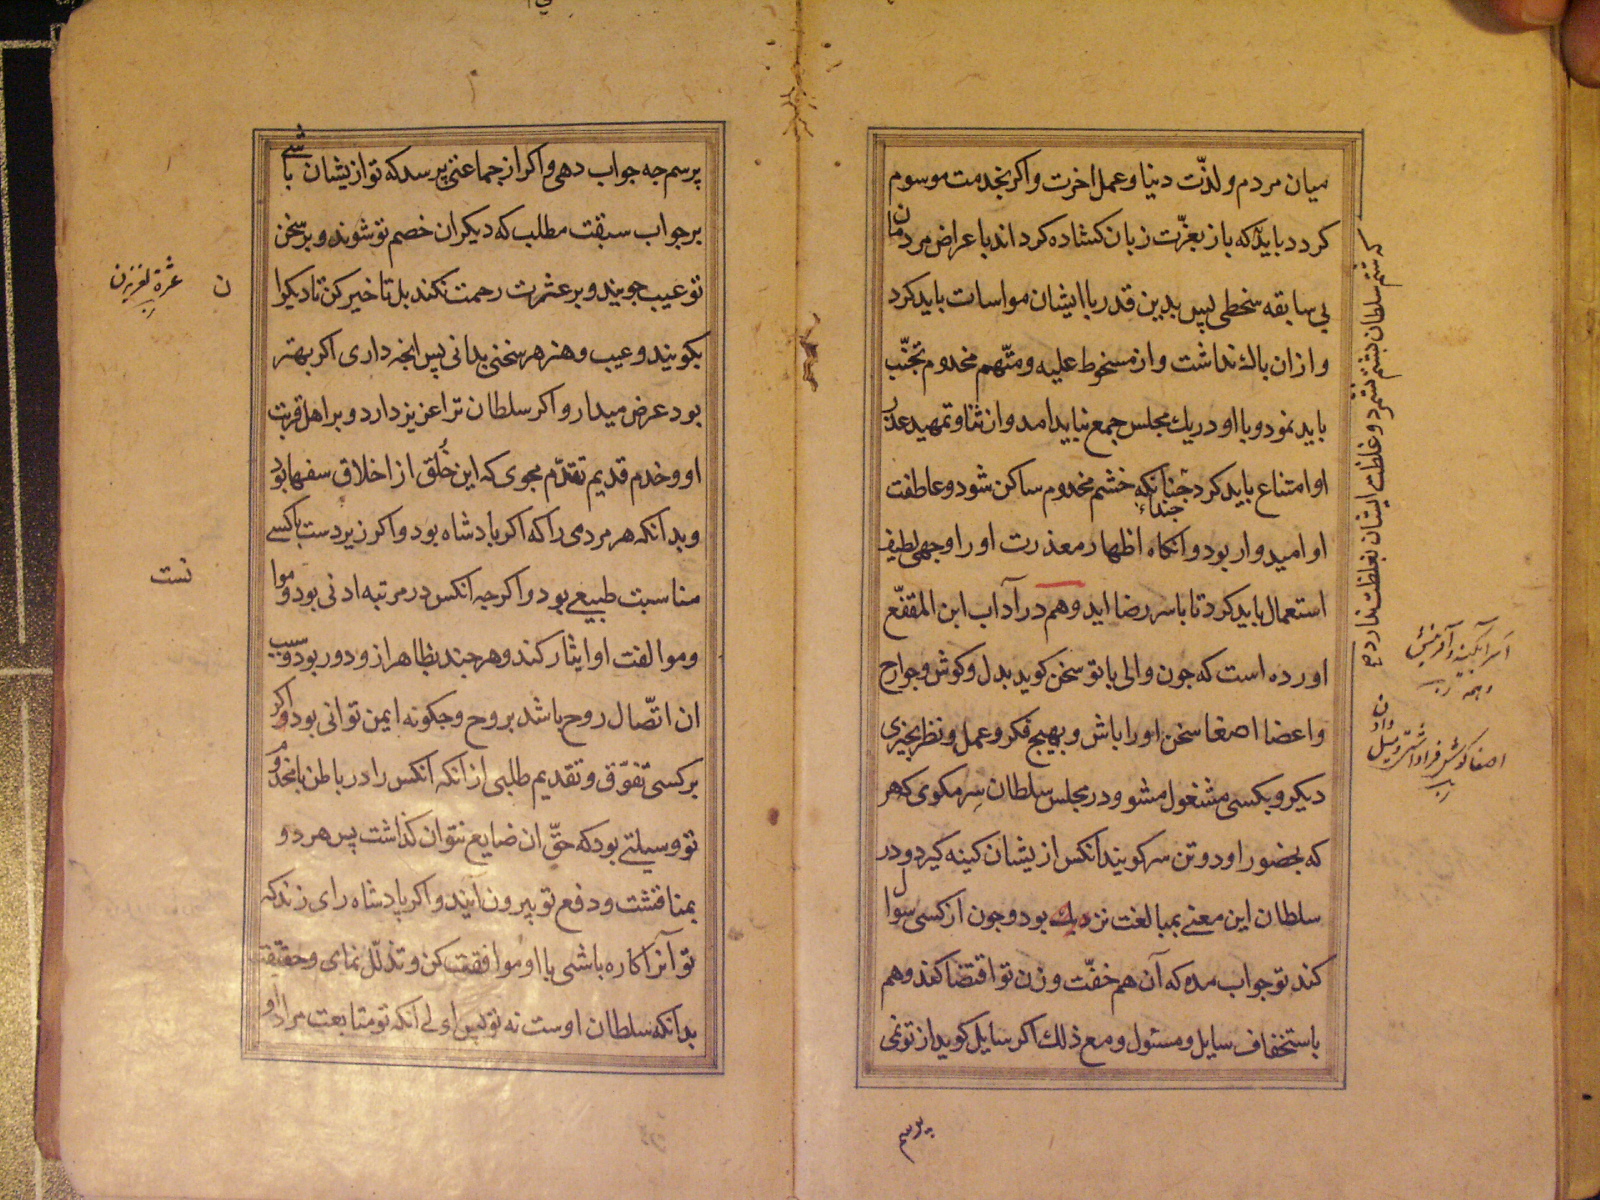 میان مردم و لذّت دنیا و عمل اخرت و اکر بخدمت موسوم
کردد باید که باز بعزّت زبان کشاده کرداند باعراض مردمان
بی سابقه سخطی پس بدین قدر با ایشان مواسات باید کرد
و ازان باک نداشت و از مسخوط علیه و متّهم مخدوم تجنّب
باید نمود و با او در یک مجلس جمع نباید امد و ان ثنا و تمهید عذر
او امتناع باید کرد جنانکه خشم مخدوم ساکن شود و عاطفت
او امیدوار بود و انکاه اظهار معذرت او را وجهی لطیف
استعمال باید کرد تا باسر رضا اید و هم در آداب ابن المقفّع
اورده است که جون والی با تو سخن کوید بدل و کوش و جوارح
و اعضا اصغا سخن او را باش و بهیچ فکر و عمل و نظر بجیزی
دیکر و بکسی مشغول مشو و در مجلس سلطان سر مکوی که هر
که بحضور او دو تن سر کویند انکس ازیشان کینه کیرد و در
سلطان این معنی بمبالغت نزدیک بود و جون از کسی سوال
کند تو جواب مده که آن هم خفّت وزن تو اقتضا کند و هم
باستخفاف سایل و مسئول و مع ذلک اکر سایل کوید از تو نمی
پرسم
که خشم سلطان بخشم نشمرد و غلظت ایشان بغلظت ندارد
پرسم جه جواب دهی و اکر از جماعتی پرسد که تو ازیشان باشی
بر جواب سبقت مطلب که دیکران خصم تو شوند و بر سخن
تو عیب جویند و بر عثرت رحمت نکنند بل تاخیر کن تا دیکرا
بکویند و عیب و هنر هر سخنی بدانی پس انجه داری اکر بهتر
بود عرض میدار و اکر سلطان ترا عزیز دارد و بر اهل قربت
او و خدم قدیم تقدّم مجوی که این خُلق از اخلاق سفها بود
و بدانکه هر مردمی را که اکر پادشاه بود و اکر زیردست با کسی
مناسبت طبیعی بود و اکرجه انکس در مرتبه ادنی بود و موا
و موالفت او ایثار کند و هرجند بظاهر ازو دور بود و سبب
ان اتّصال روح باشد بروح و جکونه ایمن توانی بود و اکر
بر کسی تفوّق و تقدیم طلبی از انکه انکس را در باطن با مخدوم
تو وسیلتی بود که حقّ ان ضایع نتوان کذاشت پس هر دو
بمناقشت و دفع تو بیرون ایند و اکر پادشاه رای زند که
تو آنرا کاره باشی با او موافقت کن و تذلّل نمای و حقیقت
بدانکه سلطان اوست نه تو پس اولی انکه تو متابعت مراد او
ن
عثرة لغزیدن
نست